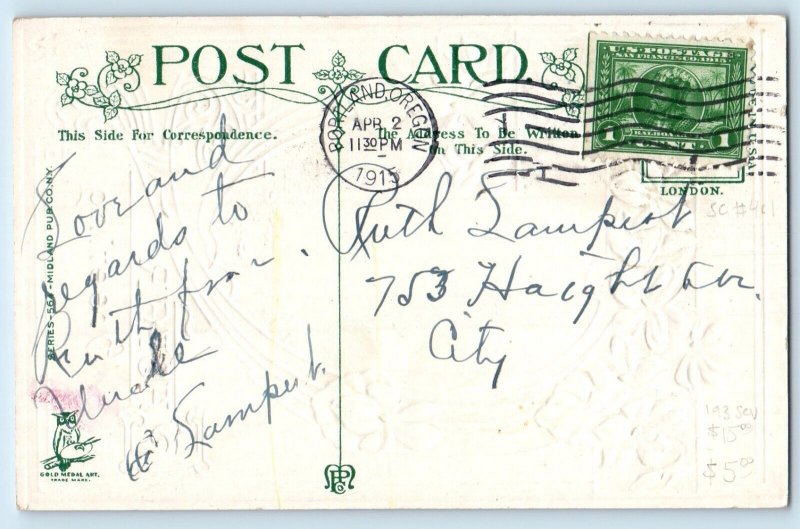 POST CARD.
This Side For Correspondence.
The Address To Be Written
on This Side.
PORTLAND, OREGON
APR 2
11 30 PM
1915
U.S. POSTAGE
SAN FRANCISCO
BALBOA
1 CENT 1
LONDON.
SC #401
Love and
regards to
Ruth from
Uncle
H Lampert.
Ruth Lampert
753 Haight Ave.
City
SERIES-56 -MIDLAND PUB.CO.N.Y.
GOLD MEDAL ART.
TRADE MARK.
$15.00
$5.00